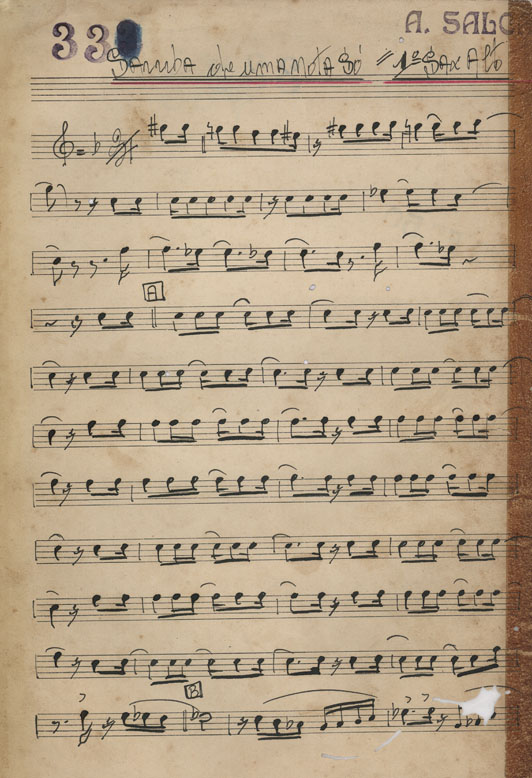 33
A. SALG
SAMBA de uma NOTA Só = 1º SAX Alto
A
B